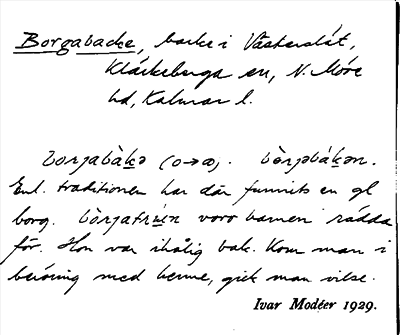 Borgabacke, backe i Västerslät,
Kläckeberga sn, N. Möre
hd, Kalmar l.
borjabàkə (o→ω). bòrjəbákən.
Enl. traditionen har där funnits en gl
borg. bòrjafrúen voro barnen rädda
för. Hon var ihålig bak. Kom man i
beröring med henne, gick man vilse.
Ivar Modéer 1929.